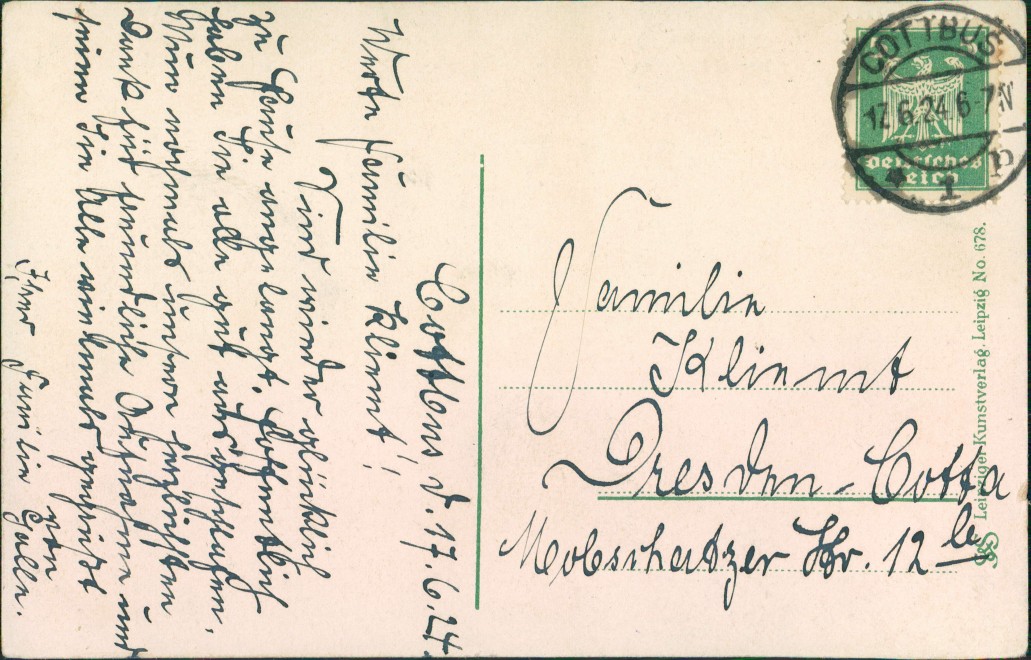 Cottbus d. 17.6.24.
Werte Familie Kliemt!
Sind wieder glücklich
zu Hause angelangt. Hoffentlich
haben Sie alle gut ausgeschlafen.
Nun nochmals unseren herzlichsten
Dank für freundliche Aufnahme und
seien Sie Alle vielmals gegrüßt
von
Ihrer Familie Galle.
COTTBUS
17.6.24.6-7N
1
Deutsches
Reich
Familie
Kliemt
Dresden-Cotta
Mobschatzer Str. 12 b
Leipziger Kunstverlag. Leipzig No. 678.